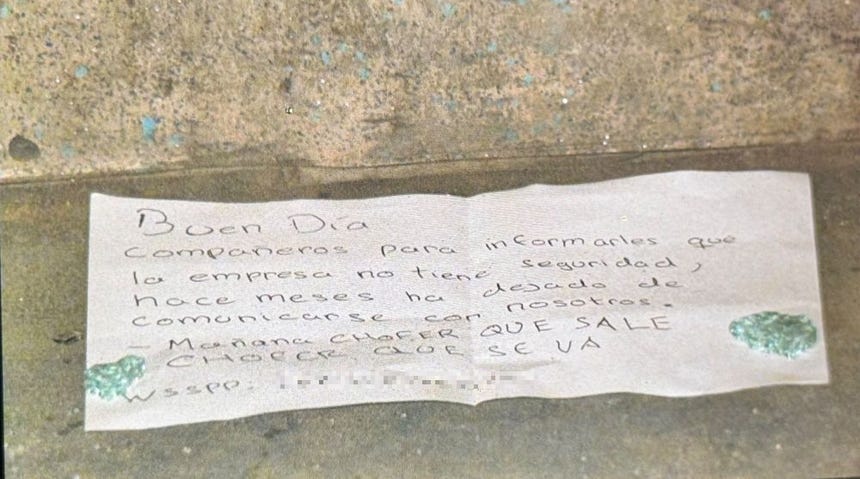 Buen Día
Compañeros para informarles que
la empresa no tiene seguridad,
hace meses ha dejado de
comunicarse con nosotros.
- Mañana CHOFER QUE SALE
CHOFER QUE SE VA
WSSPP: